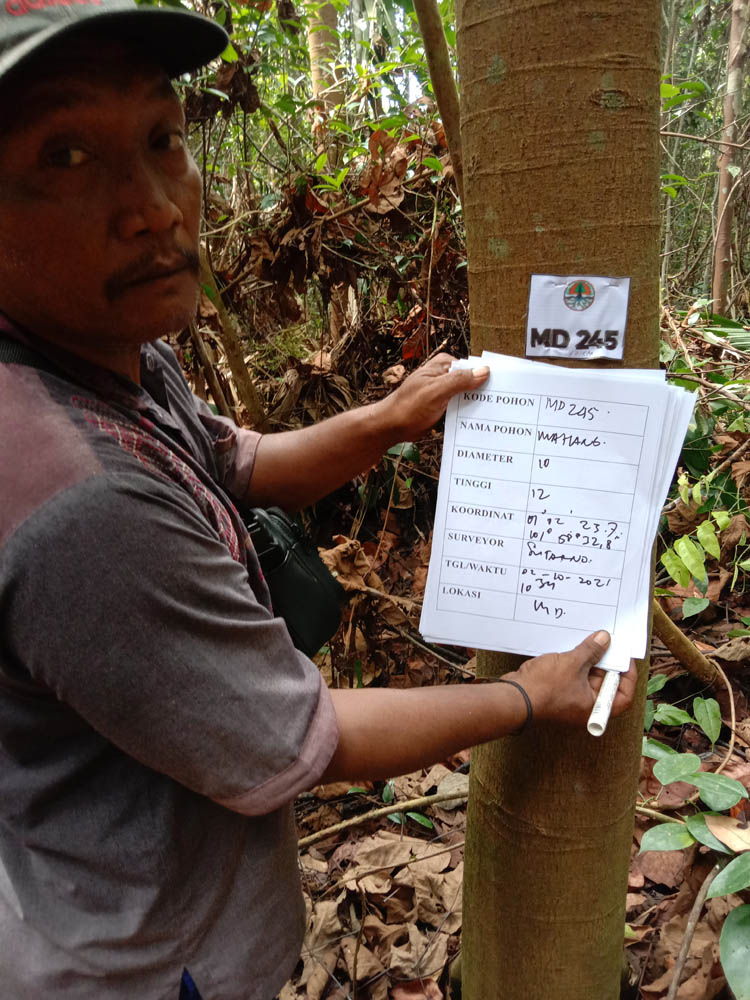 MD 245
KODE POHON MD 245.
NAMA POHON MAHANG.
DIAMETER 10
TINGGI 12
KOORDINAT 01° 02' 23.7"
101° 50' 32,8"
SURVEYOR SUTARNO.
TGL/WAKTU 02-10-2021
10
LOKASI MD.